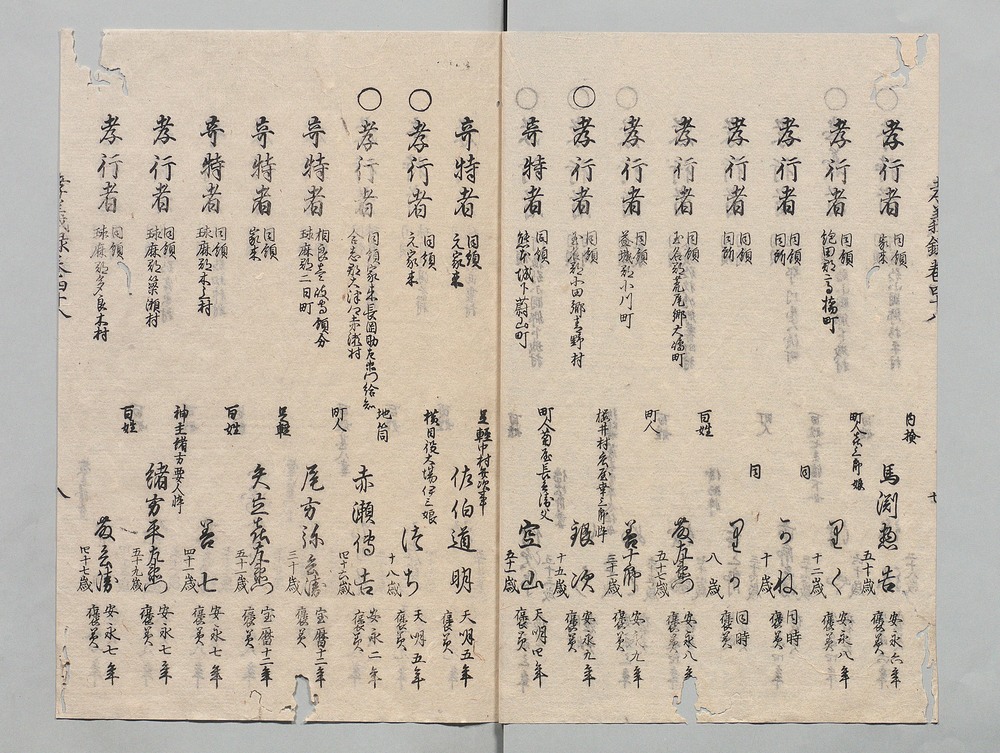 孝義録巻四十八
孝行者 同領 家来 内検 馬渕惣吉 五十歳 安永六年 褒美
孝行者 同領 飽田郡高橋町 町人 娘 里く 十二歳 安永八年 褒美
孝行者 同領 同所 同 ね 十歳 同時 褒美
孝行者 同領 同所 同 里 八歳 同時 褒美
孝行者 同領 玉名郡荒尾郷大嶋町 百姓 五十七歳 安永八年 褒美
孝行者 同領 益城郡小川町 町人 善十郎 三十歳 安永九年 褒美
孝行者 同領 郡小田郷 野村 桜井村 銀次 十五歳 安永九年 褒美
奇特者 同領 熊本城下蔚山町 町人菊屋長兵衛父 空山 五十一歳 天明四年 褒美
奇特者 同領 元家来 足軽中村安次事 佐伯道明 天明五年 褒美
孝行者 同領 元家来 横目役大場伊三娘 ち 十八歳 天明五年 褒美
孝行者 同領家来長岡助右衛門給知 合志郡大津 赤瀬村 地筒 赤瀬傳吉 四十六歳 安永二年 褒美
奇特者 相良壱岐守領分 球麻郡二日町 町人 尾方弥兵衛 三十歳 宝暦十二年 褒美
奇特者 同領 家来 足軽 久 五十歳 宝暦十二年 褒美
奇特者 同領 球麻郡木上村 百姓 善七 四十二歳 安永七年 褒美
孝行者 同領 球麻郡築瀬村 神主緒方要人忰 緒方平 五十九歳 安永七年 褒美
孝行者 同領 球麻郡多良木村 百姓 兵衛 四十七歳 安永七年 褒美